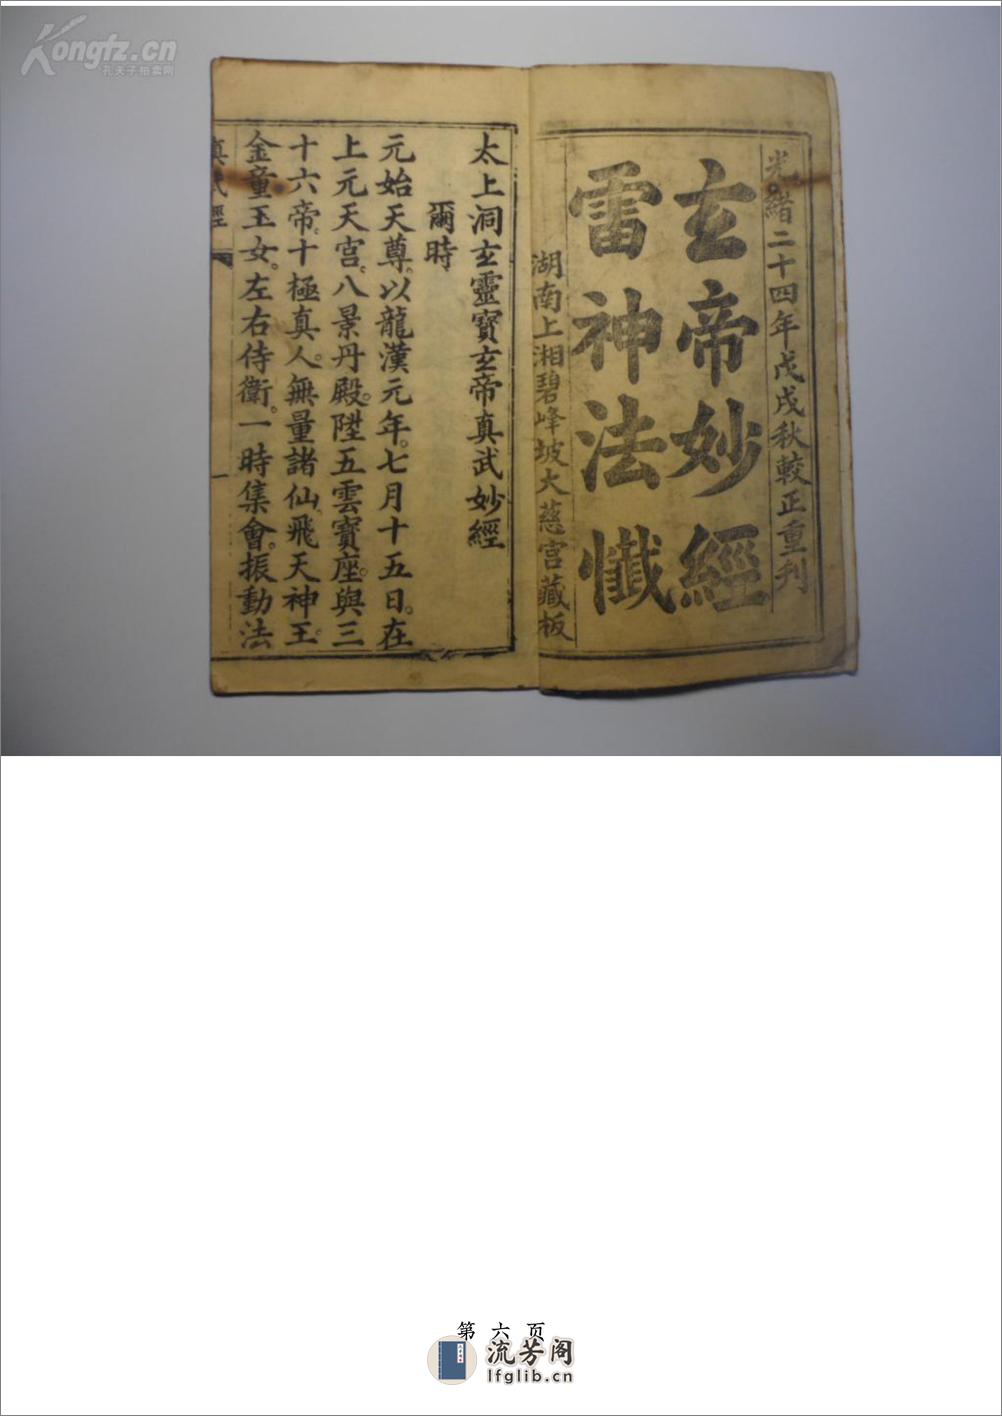 Kongfz.cn
孔夫子拍卖网
光緒二十四年戊戌秋較正重刋
玄帝妙經
雷神法懺
湖南上湘碧峰坡大慈宫藏板
太上洞玄靈寶玄帝真武妙經
爾時
元始天尊。以龍漢元年。七月十五日。在
上元天宫。八景丹殿。陞五雲寶座。與三
十六帝。十極真人。無量諸仙。飛天神王。
金童玉女。左右侍衛。一時集會。振動法
真武經
一
第六页
流芳阁
lfglib.cn